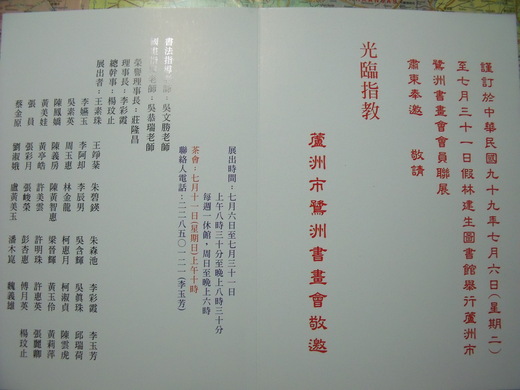 謹訂於中華民國九十九年七月六日(星期二)
至七月三十一日假林建生圖書館舉行蘆洲市
鷺洲書畫會會員聯展
肅柬奉邀　敬請
光臨指教
蘆洲市鷺洲書畫會敬邀
展出時間：七月六日至七月三十一日
上午八時三十分至晚上八時三十分
每週一休館，周日至晚上六時
茶會：七月十一日(星期日)上午十時
聯絡人電話：二二八五〇一二一(李玉芳)
書法指導老師：吳文勝老師
國畫指導老師：吳恭瑞老師
榮譽理事長：莊隆昌
理事長：李彩霞
總幹事：楊玟止
展出者：王素珠　李嬿玉　吳素英　陳鳳嬌　黃美娃　張員　蔡金原
王竫葇　李阿却　周玉惠　陳義房　黃亭皓　張彩月　劉淑娥
朱碧鍈　李辰男　林金龍　陳黃智惠　許美雲　張峻榮　盧黃美玉
朱森池　吳含輝　柯惠月　梁晉輝　許明珠　彭杏惠　潘木崑
李彩霞　吳眞珠　柯淑貞　黃玉伶　許惠英　傅月英　魏義雄
李玉芳　邱瑞荷　陳雲虎　黃莉萍　張麗卿　楊玟止